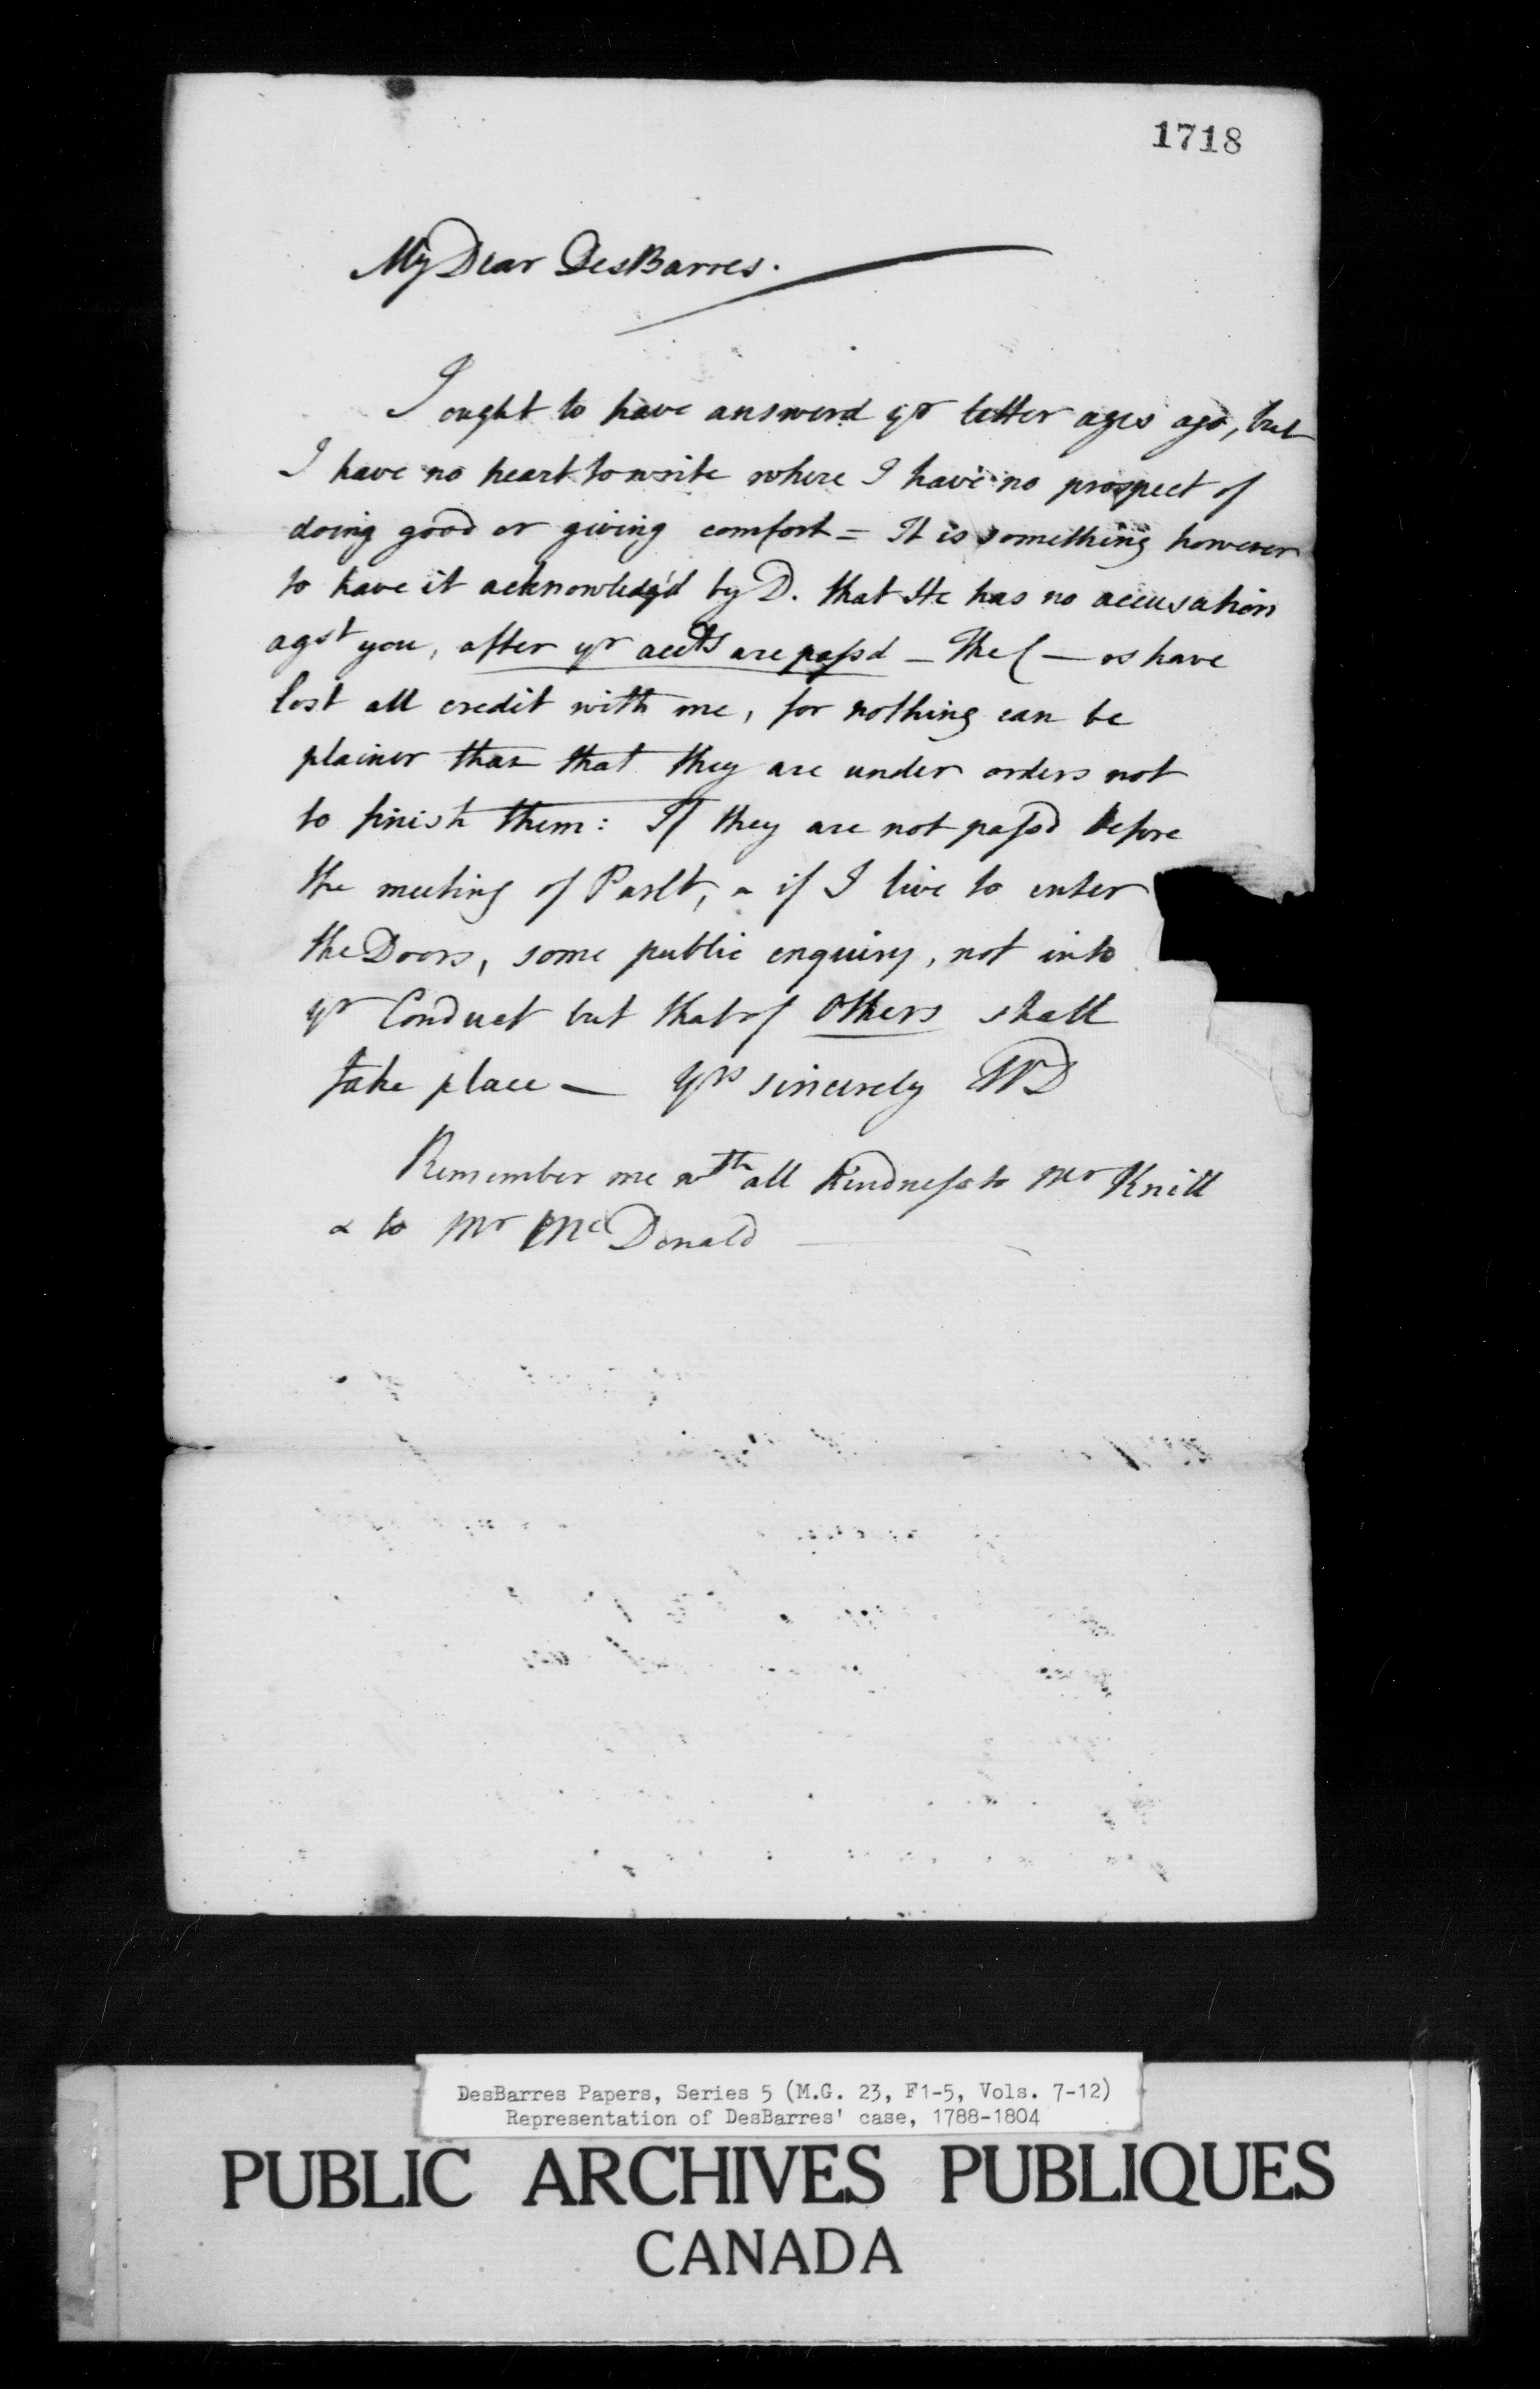 1718
My Dear DesBarres.
I ought to have answerd yr letter ages ago, but
I have no heart to write where I have no prospect of
doing good or giving comfort = It is something however
to have it acknowledg'd by D. that He has no accusation
agst you, after yr accts are passd — The C—rs have
lost all credit with me, for nothing can be
plainer than that they are under orders not
to finish them: If they are not passd before
the meeting of Parlt, & if I live to enter
the Doors, some public enquiry, not into
yr Conduct but that of others shall
take place — Yrs sincerely WD
Remember me wth all Kindness to Mr Knill
& to Mr McDonald
DesBarres Papers, Series 5 (M.G. 23, F1-5, Vols. 7-12)
Representation of DesBarres' case, 1788-1804
PUBLIC ARCHIVES PUBLIQUES
CANADA